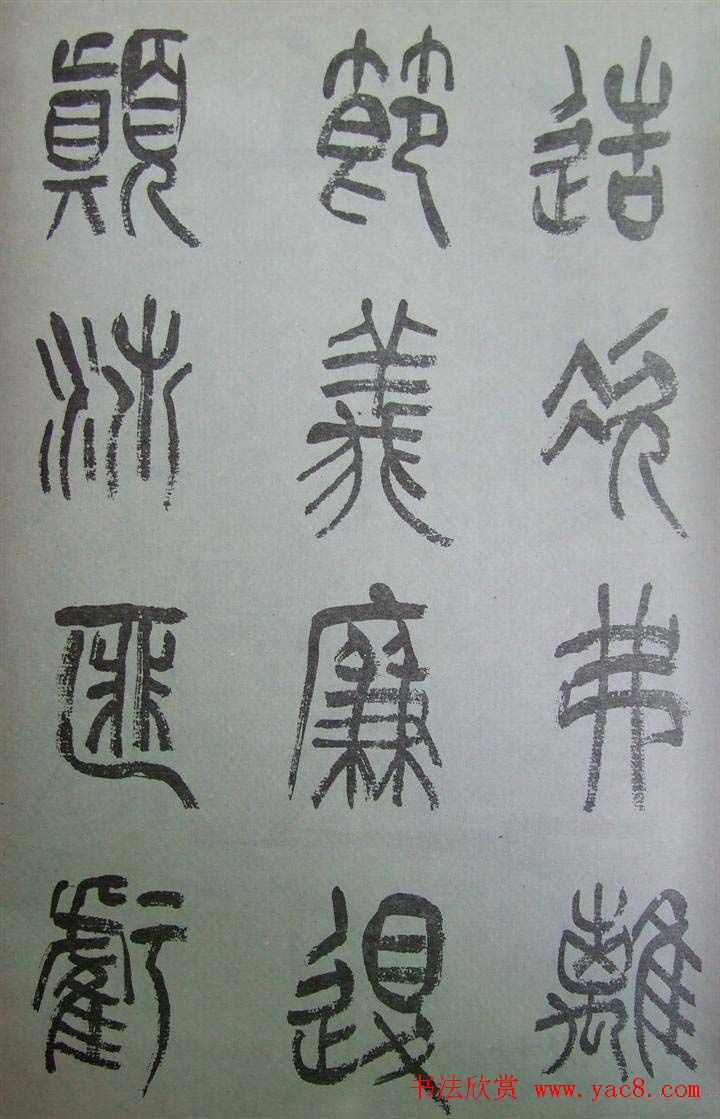 造次弗離
節義廉退
顛沛匪虧
书法欣赏 www.yac8.com